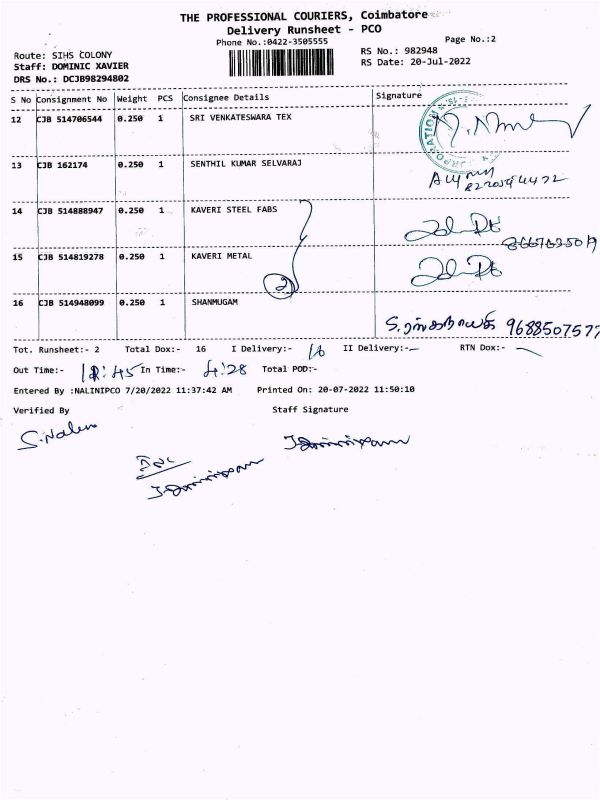 THE PROFESSIONAL COURIERS, Coimbatore
Delivery Runsheet - PCO
Phone No.:0422-3505555
Page No.:2
Route: SIHS COLONY
RS No.: 982948
Staff: DOMINIC XAVIER
RS Date: 20-Jul-2022
DRS No.: DCJB98294802
S No Consignment No Weight PCS Consignee Details Signature
12 CJB 514706544 0.250 1 SRI VENKATESWARA TEX
13 CJB 162174 0.250 1 SENTHIL KUMAR SELVARAJ
14 CJB 514888947 0.250 1 KAVERI STEEL FABS
15 CJB 514819278 0.250 1 KAVERI METAL
2
16 CJB 514948099 0.250 1 SHANMUGAM
9688507577
Tot. Runsheet:- 2 Total Dox:- 16 I Delivery:- 16 II Delivery:- RTN Dox:-
Out Time:- In Time:- 4:28 Total POD:-
Entered By :NALINIPCO 7/20/2022 11:37:42 AM Printed On: 20-07-2022 11:50:10
Verified By Staff Signature
S.Nalini